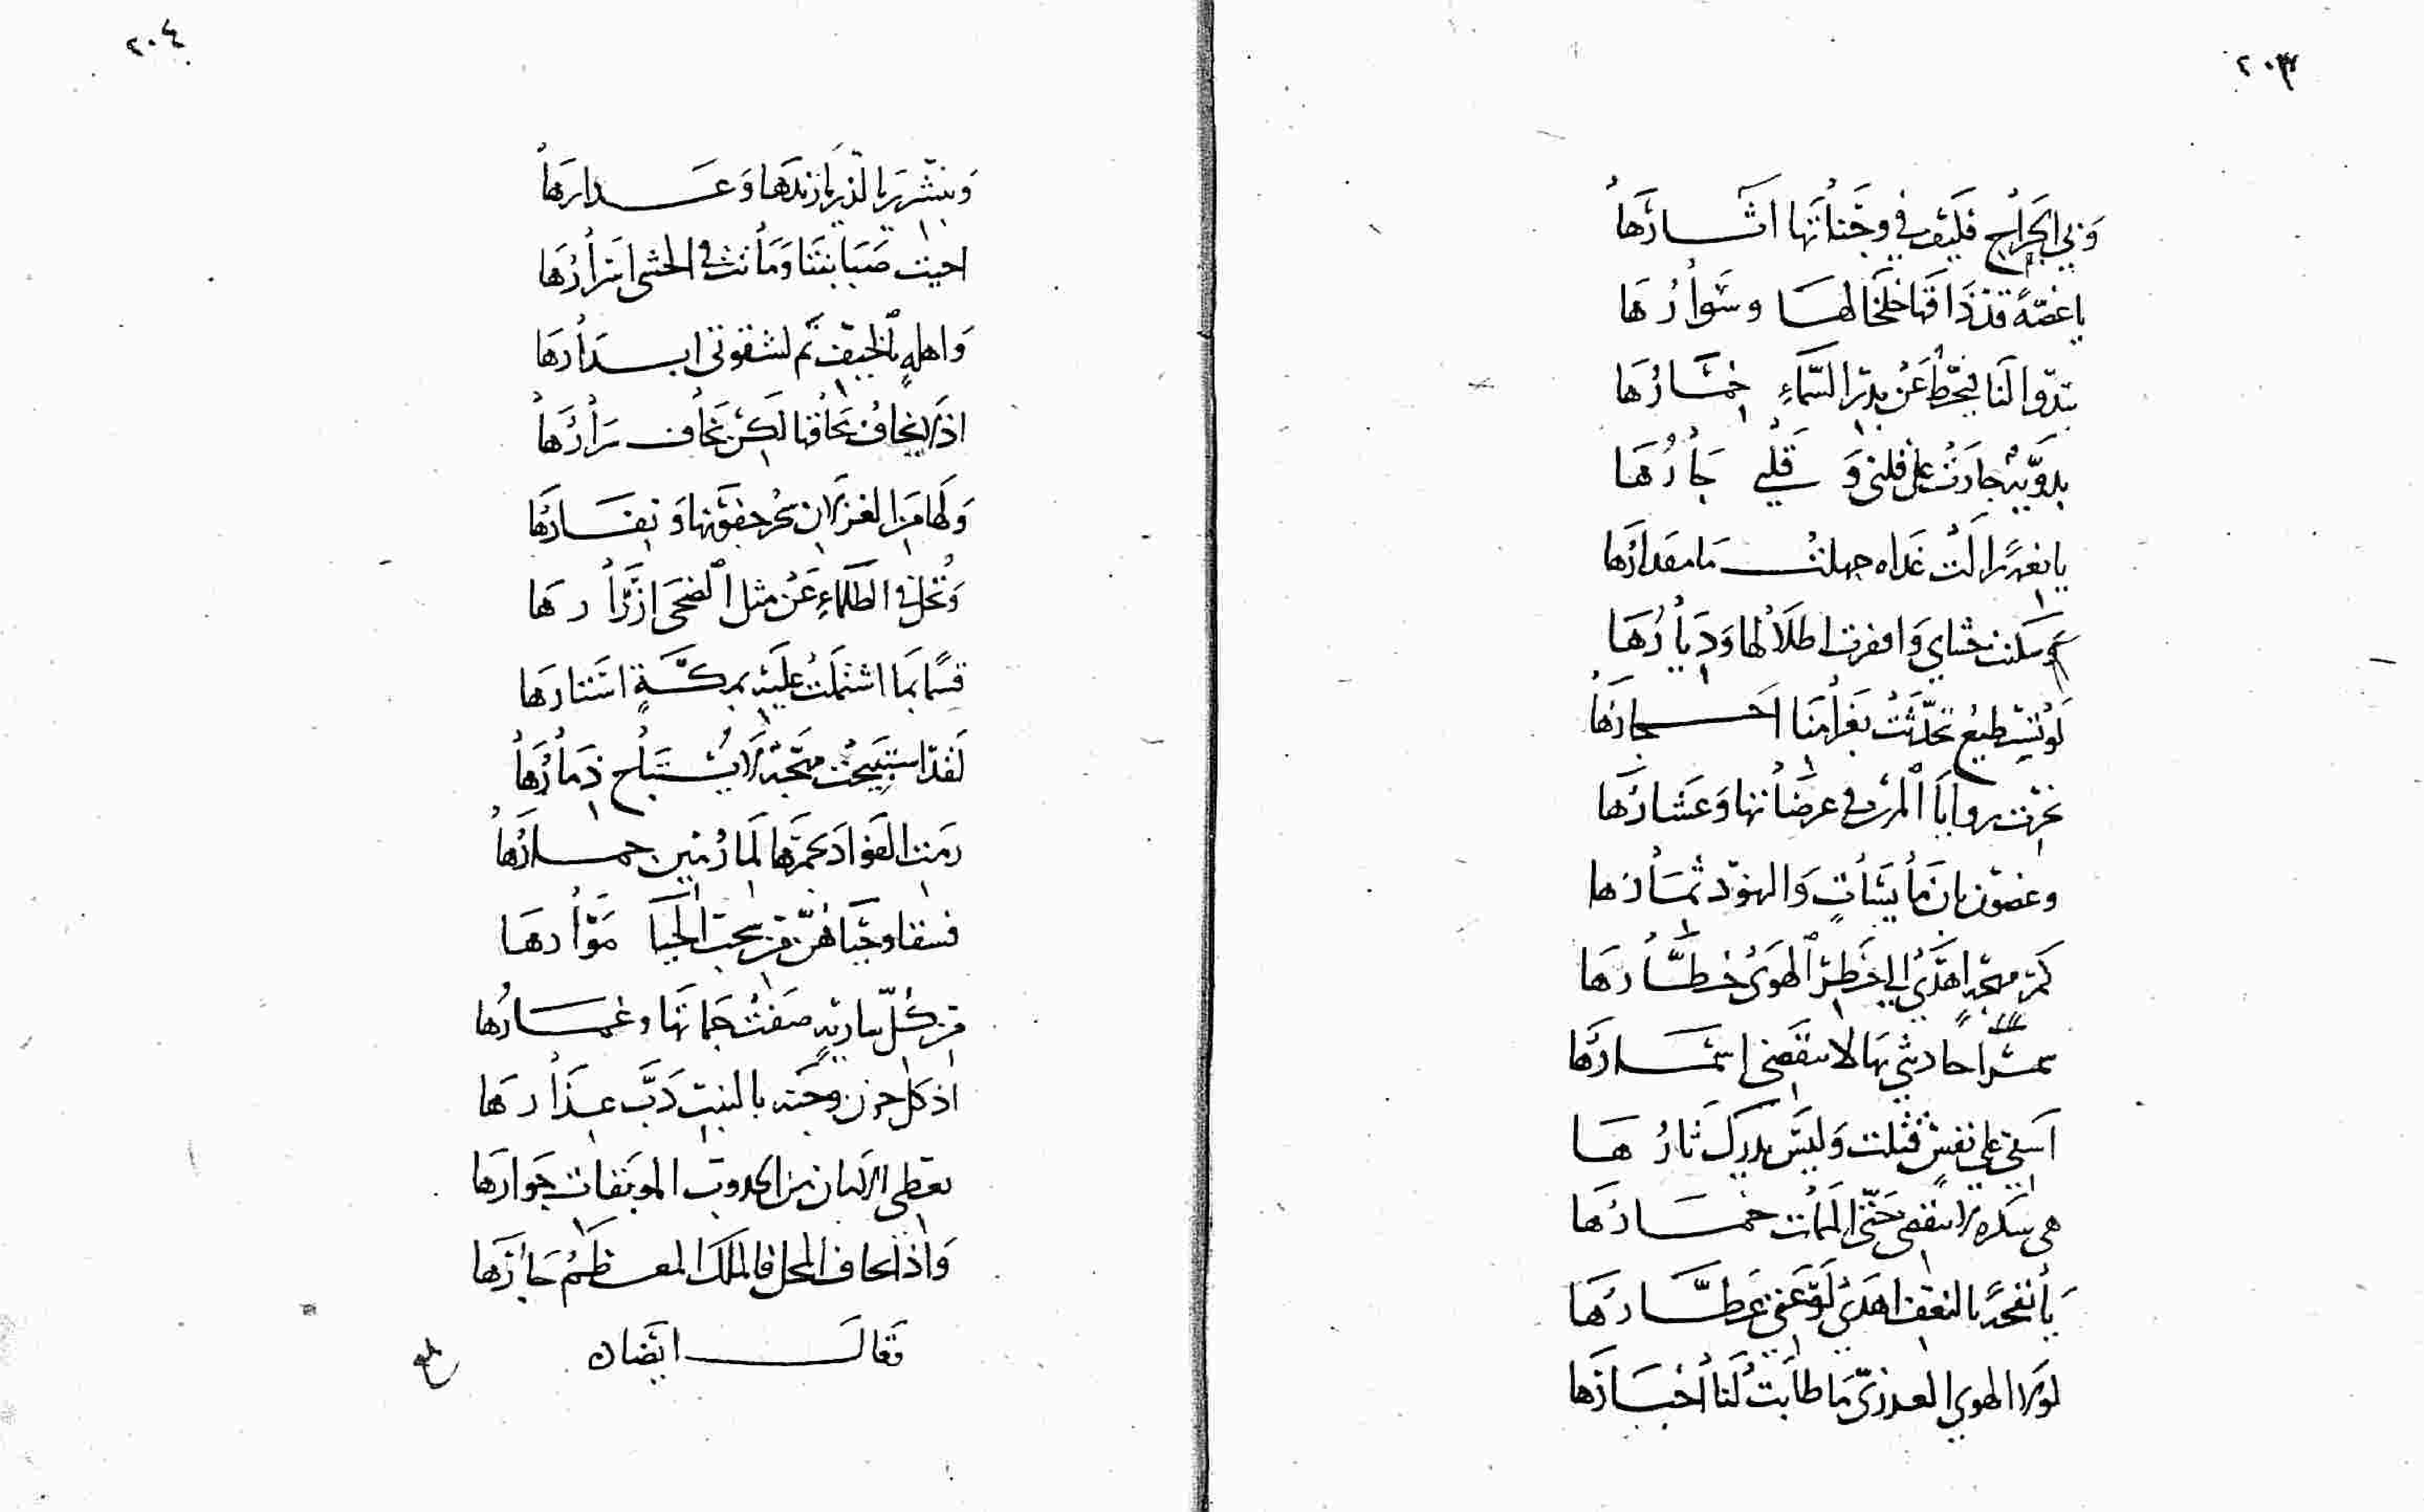 ٢٠٣
وَبِي الجَرَاحُ فَكَيْفَ في وَجَنَاتها اثَارُهَا
يا غصّةً قَدْ ذَاقَهَا خَلْخَالهَا وسَوارُهَا
تبدّوا لَنَا فيَحُطّ عَنْ بدر السَّمَاءِ خمَارُهَا
بدَويّة جارَتْ على قلبي وَ قلبي جَارُهَا
يا نعمةً زالَتْ غَداه جهلتُ مَا مقدَارُهَا
سكنت حشاي وَاقفرت اطلَالها وَدِيارُهَا
لَوْ تستَطيع تحَدّثَتْ بغَرامنَا احجارُهَا
نحرت روايَا المزن في عرصَاتها وَعشَارُهَا
وغصون بان مَايسَاتٍ وَالنهود ثمَارُهَا
كَمْ مهجةٍ اهْدَى الي خَطَرِ الهَوَى خطَّارُهَا
سمرًا حادثي بهَا لا تنقَضي اسْمَارُهَا
اسَفي علي نفسٍ قتلت وَليسَ يدرك ثارُهَا
هي سكره لا تنقضي حَتّى الممَات خمَارُهَا
يَا نفحَةً بالنعف اهدَى لَوْعَتي عَطَّارُهَا
لَولا الهوي العذريّ مَا طابَتْ لَنَا أخْبَارُهَا
٢٠٤
احيت صَبَابتنَا وَمَاتت في الحشى اسْرارُهَا
وَاهلهِ بالخيف تم لشقوتي ابدَارُهَا
اذ لا يخافُ محَاقها لكن يخَاف سَرارُهَا
وَلهَا من الغزلان سحر جفونها وَنفَارُهَا
وَتحل في الظلماءِ عَنْ مثل الضحَى ازرَارهَا
قسمًا بمَا اشتملَتْ عليه بمكَّةٍ استَارهَا
لَقد استبيحت مهجَة لَا يُستَبَاح ذمَارُهَا
رمَت الفؤادَ بجمرها لَما رُمين جمارُهَا
فسقا وحيَّاهنّ من سحب الحيَا مَوَّارهَا
من كلّ ساريةٍ صفَتْ جمَاتهَا وغمَارُهَا
اذ كل حزن وجنه بالنبت دَبَّ عذَارهَا
تعطي الزمان من الخطوب الموبقات جوَارهَا
وَاذا يخاف المحل فالملك المعظم جَارُهَا
وَقالَ ايضًا